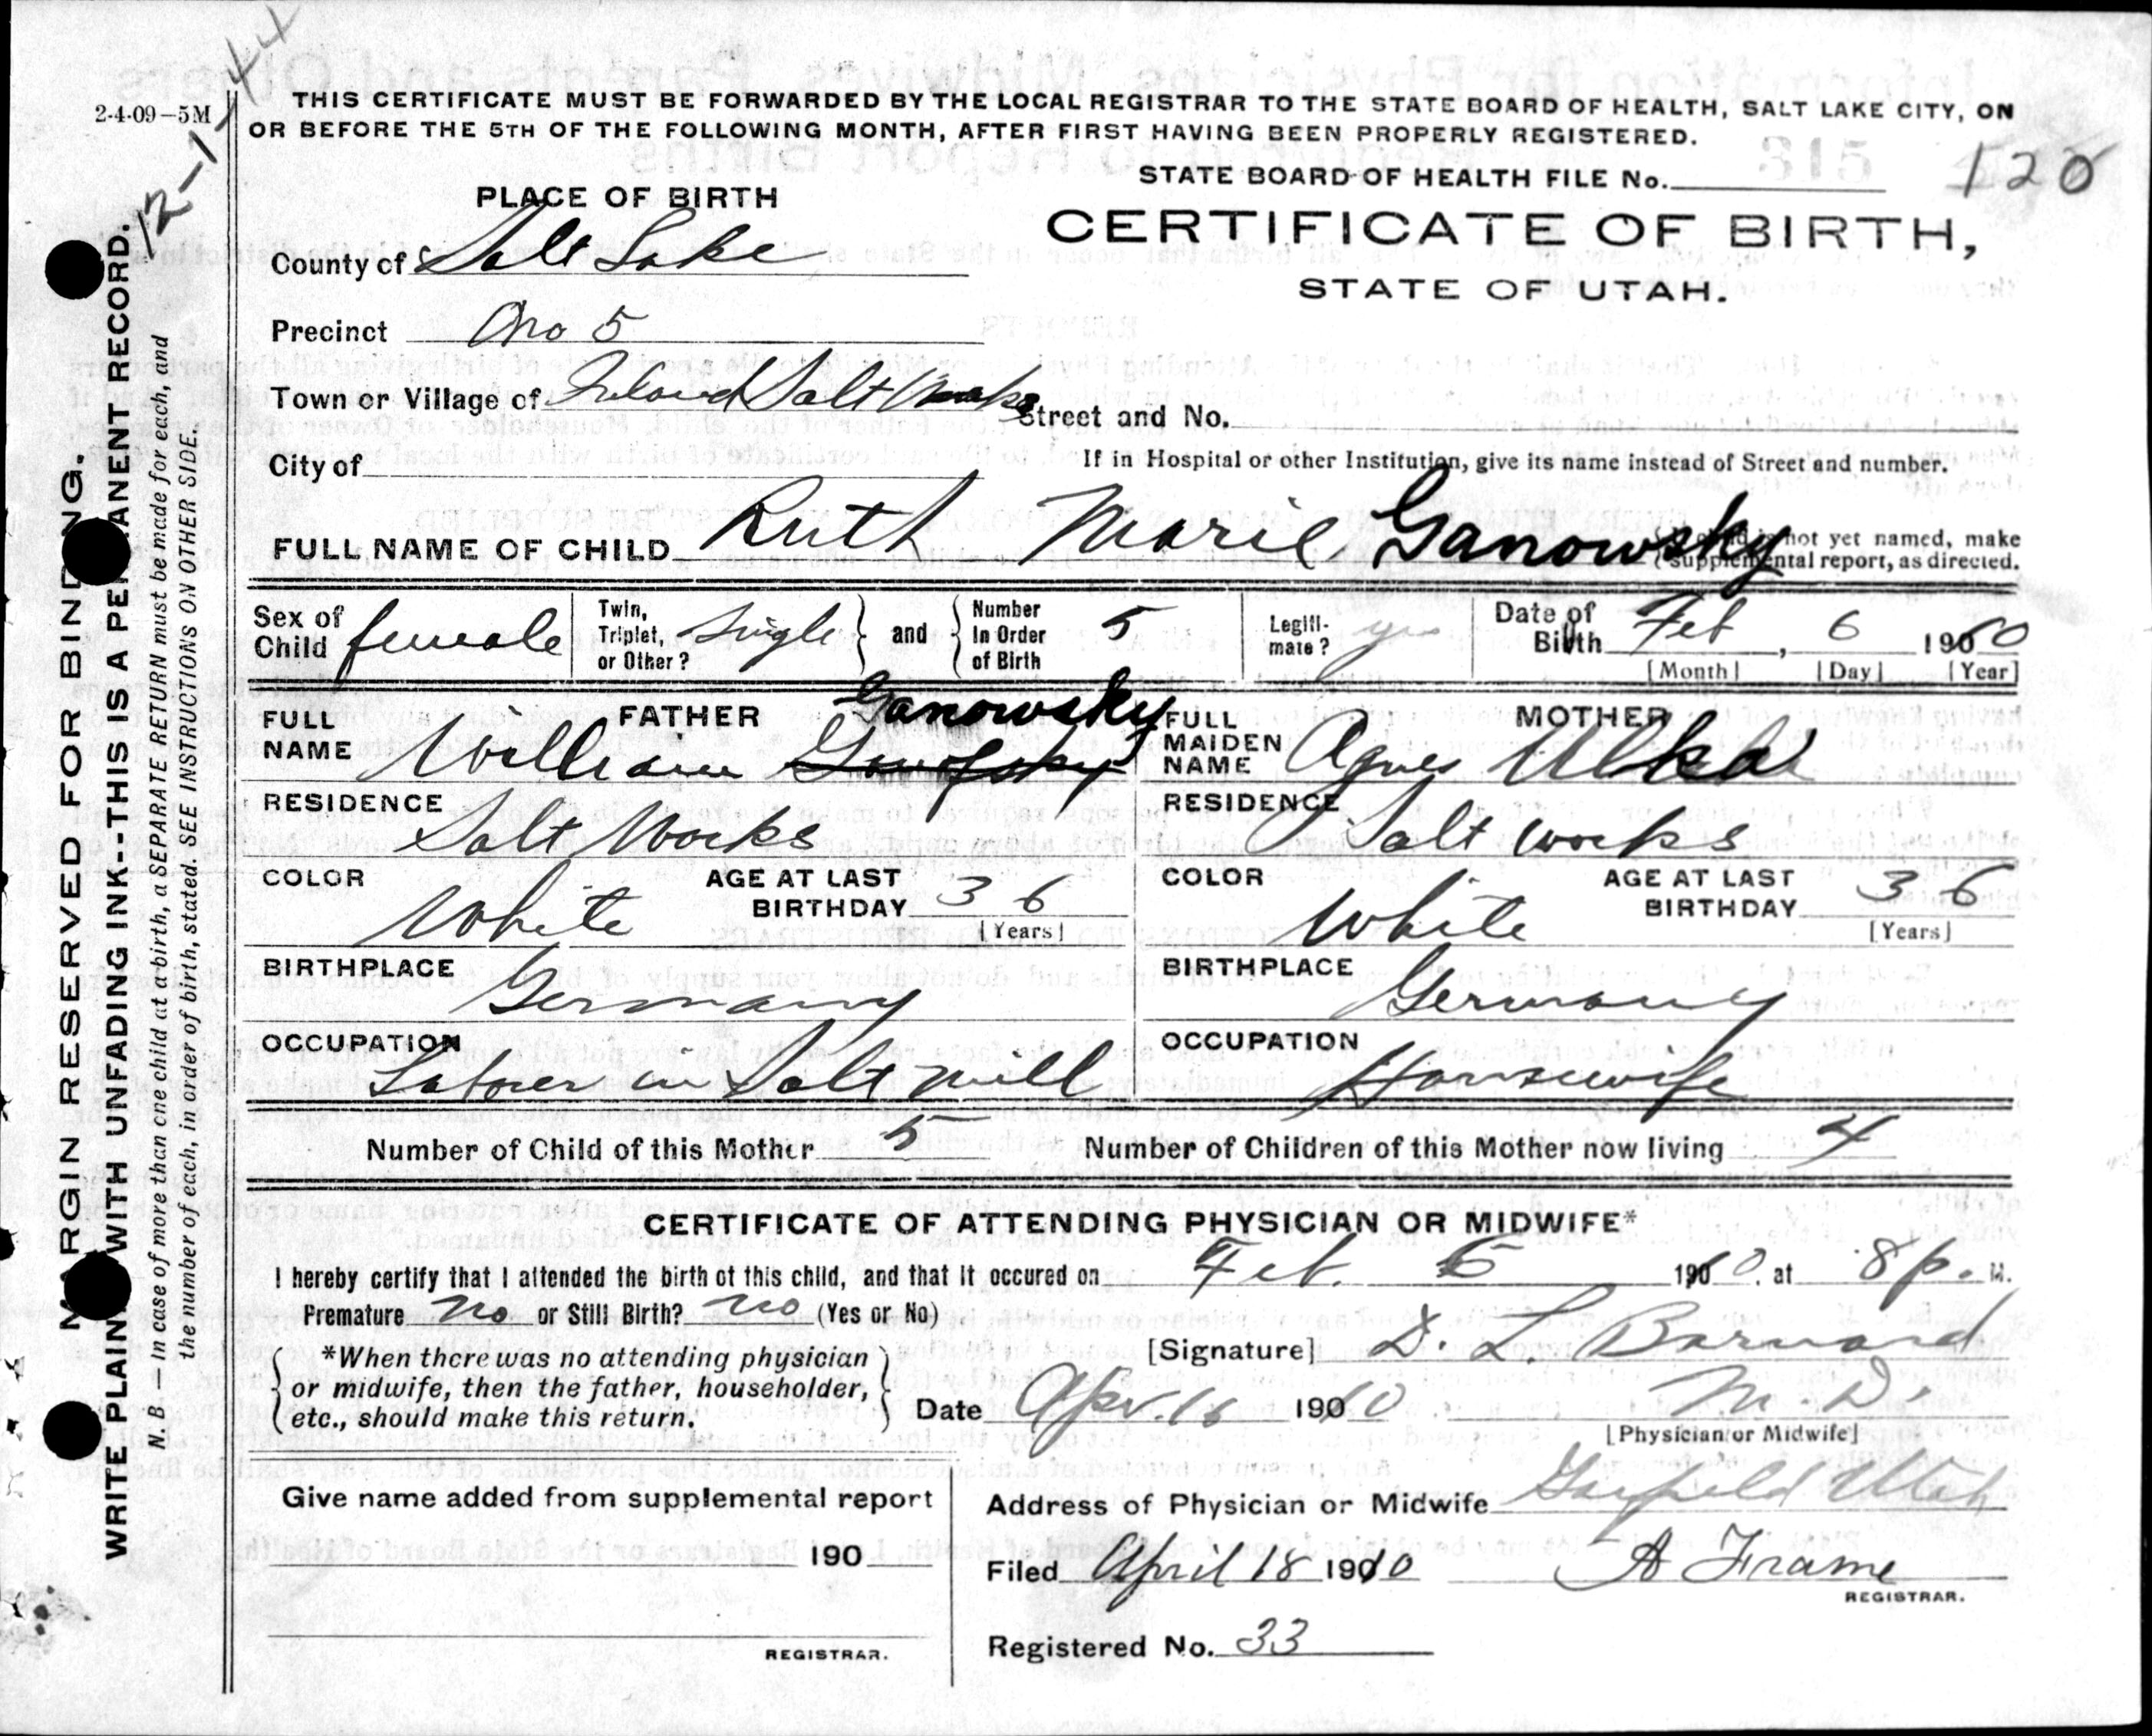 2-4-09—5M
12-1-44
THIS CERTIFICATE MUST BE FORWARDED BY THE LOCAL REGISTRAR TO THE STATE BOARD OF HEALTH, SALT LAKE CITY, ON
OR BEFORE THE 5TH OF THE FOLLOWING MONTH, AFTER FIRST HAVING BEEN PROPERLY REGISTERED.
STATE BOARD OF HEALTH FILE No. 120
PLACE OF BIRTH
CERTIFICATE OF BIRTH,
STATE OF UTAH.
County of Salt Lake
Precinct No 5
Town or Village of Inland Salt Works Street and No.
City of If in Hospital or other Institution, give its name instead of Street and number.
FULL NAME OF CHILD Ruth Marie Ganowsky
not yet named, make
supplemental report, as directed.
Sex of Child female Twin, Triplet, or Other? Single and Number In Order of Birth 5 Legitimate? yes Date of Birth Feb, 6 1910
[Month] [Day] [Year]
FATHER
FULL NAME William Ganowsky
MOTHER
FULL MAIDEN NAME Agnes
RESIDENCE Salt Works
RESIDENCE Salt works
COLOR White AGE AT LAST BIRTHDAY 36 [Years]
COLOR White AGE AT LAST BIRTHDAY 36 [Years]
BIRTHPLACE Germany
BIRTHPLACE Germany
OCCUPATION Laborer in Salt mill
OCCUPATION Housewife
Number of Child of this Mother 5 Number of Children of this Mother now living 4
CERTIFICATE OF ATTENDING PHYSICIAN OR MIDWIFE*
I hereby certify that I attended the birth of this child, and that it occured on Feb. 6 1910, at 8 p. M.
Premature no or Still Birth? no (Yes or No)
*When there was no attending physician
or midwife, then the father, householder,
etc., should make this return.
[Signature] D. L. Barnard
Date Apr. 16 1910 M. D.
[Physician or Midwife]
Give name added from supplemental report
190
REGISTRAR.
Address of Physician or Midwife Garfield Utah
Filed April 18 1910 A Frame
REGISTRAR.
Registered No. 33
MARGIN RESERVED FOR BINDING.
WRITE PLAINLY WITH UNFADING INK--THIS IS A PERMANENT RECORD.
N. B.—In case of more than one child at a birth, a SEPARATE RETURN must be made for each, and
the number of each, in order of birth, stated. SEE INSTRUCTIONS ON OTHER SIDE.